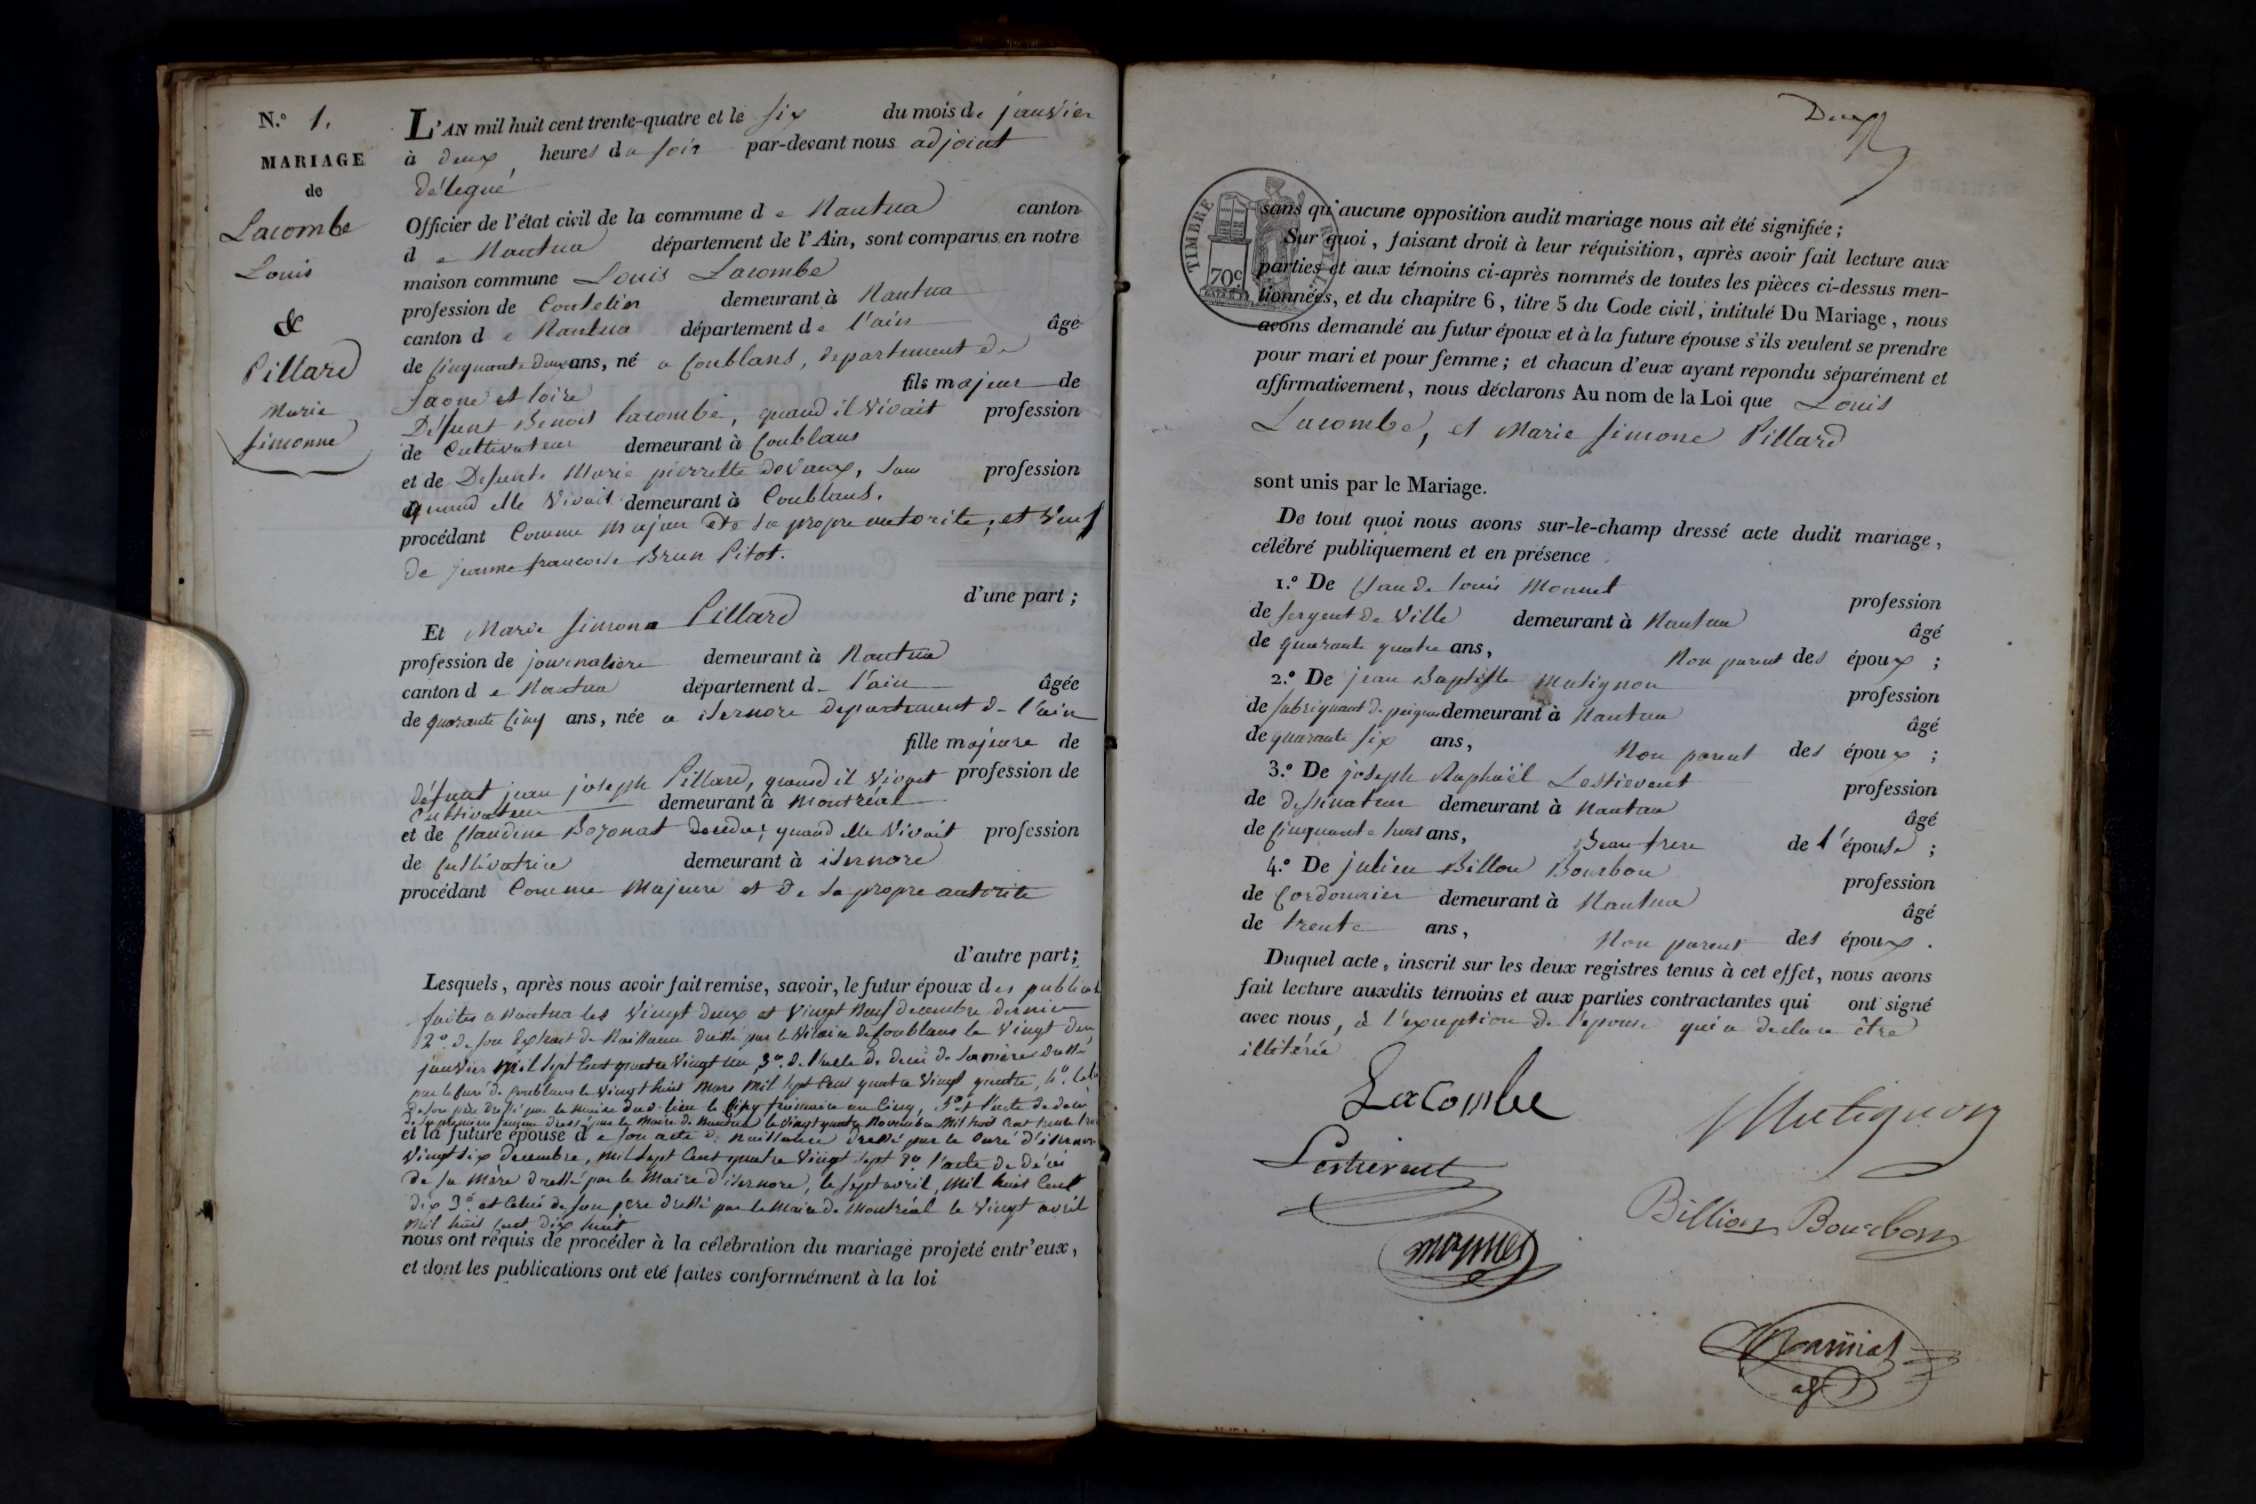 N.° 1.
MARIAGE
de
Lacombe
Louis
&
Pillard
Marie
Simonne
L'AN mil huit cent trente-quatre et le six du mois de janvier
à deux heures du soir par-devant nous adjoint
délégué
Officier de l'état civil de la commune de Nantua canton
de Nantua département de l'Ain, sont comparus en notre
maison commune Louis Lacombe
profession de Coutelier demeurant à Nantua
canton de Nantua département de l'ain âgé
de Cinquante deux ans, né a Coublans, departement de
Saone et loire fils majeur de
Défunt Benoit lacombe, quand il vivait profession
de Cultivateur demeurant à Coublans
et de Defunte Marie pierrette devaux, sans profession
quand elle vivait demeurant à Coublans.
procédant Comme majeur et de sa propre autorite, et veuf
de jeanne francoise Brun Pitot.
d'une part ;
Et Marie Simone Pillard
profession de journaliere demeurant à Nantua
canton de Nantua département de l'ain âgée
de quarante Cinq ans, née a isernore departement de l'ain
fille majeure de
défunt jean joseph Pillard, quand il vivait profession de
Cultivateur demeurant à Montréal
et de Claudine Bozonat decedée, quand elle vivait profession
de Cultivatrice demeurant à isernore
procédant Comme Majeure et de sa propre autorite
d'autre part ;
Lesquels, après nous avoir fait remise, savoir, le futur époux des publicat
faites a Nantua les vingt deux et vingt neuf decembre dernier
2.° de son Extrait de Naissance dressé par le Vicaire de Coublans le vingt deux
janvier mil sept Cent quatre vingt un, 3.° de l'acte de décès de sa mère dressé
par le Curé de Coublans le vingt huit Mars mil sept Cent quatre vingt quatre, 4.° Celui
de son père dressé par le Maire dud. lieu le Cinq frimaire an Cinq, 5.° et l'acte de décès
de sa premiere femme dressé par le Maire de Nantua le vingt quatre Novembre mil huit Cent trente trois
et la future épouse de son acte de naissance dressé par le Curé d'isernore
vingt six decembre, mil sept Cent quatre vingt sept 2.° l'acte de décès
de sa Mère dressé par le Maire d'isernore, le sept avril, mil huit Cent
dix 3.° et Celui de son pere dressé par le Maire de Montréal le vingt avril
mil huit Cent dix huit
nous ont requis de procéder à la célébration du mariage projeté entr'eux,
et dont les publications ont eté faites conformément à la loi
Deux
TIMBRE
70c
sans qu'aucune opposition audit mariage nous ait été signifiée ;
Sur quoi, faisant droit à leur réquisition, après avoir fait lecture aux
parties et aux témoins ci-après nommés de toutes les pièces ci-dessus men-
tionnées, et du chapitre 6, titre 5 du Code civil, intitulé Du Mariage, nous
avons demandé au futur époux et à la future épouse s'ils veulent se prendre
pour mari et pour femme ; et chacun d'eux ayant repondu séparément et
affirmativement, nous déclarons Au nom de la Loi que Louis
Lacombe, et Marie Simone Pillard
sont unis par le Mariage.
De tout quoi nous avons sur-le-champ dressé acte dudit mariage,
célébré publiquement et en présence
1.° De Claude louis Monnet profession
de sergent de Ville demeurant à Nantua âgé
de quarante quatre ans, Non parent des époux ;
2.° De jean Baptiste Matignon profession
de fabriquant de peignes demeurant à Nantua âgé
de quarante six ans, Non parent des époux ;
3.° De joseph Raphaël Lestievent profession
de dessinateur demeurant à Nantua âgé
de Cinquante huit ans, Beau frere de l'épouse ;
4.° De julien Billon Bourbon profession
de Cordonnier demeurant à Nantua âgé
de trente ans, Non parent des époux .
Duquel acte, inscrit sur les deux registres tenus à cet effet, nous avons
fait lecture auxdits témoins et aux parties contractantes qui ont signé
avec nous, à l'exception de l'épouse qui a declaré être
illitérée
Lacombe
Matignon
Lestievent
Billion Bourbon
monnet